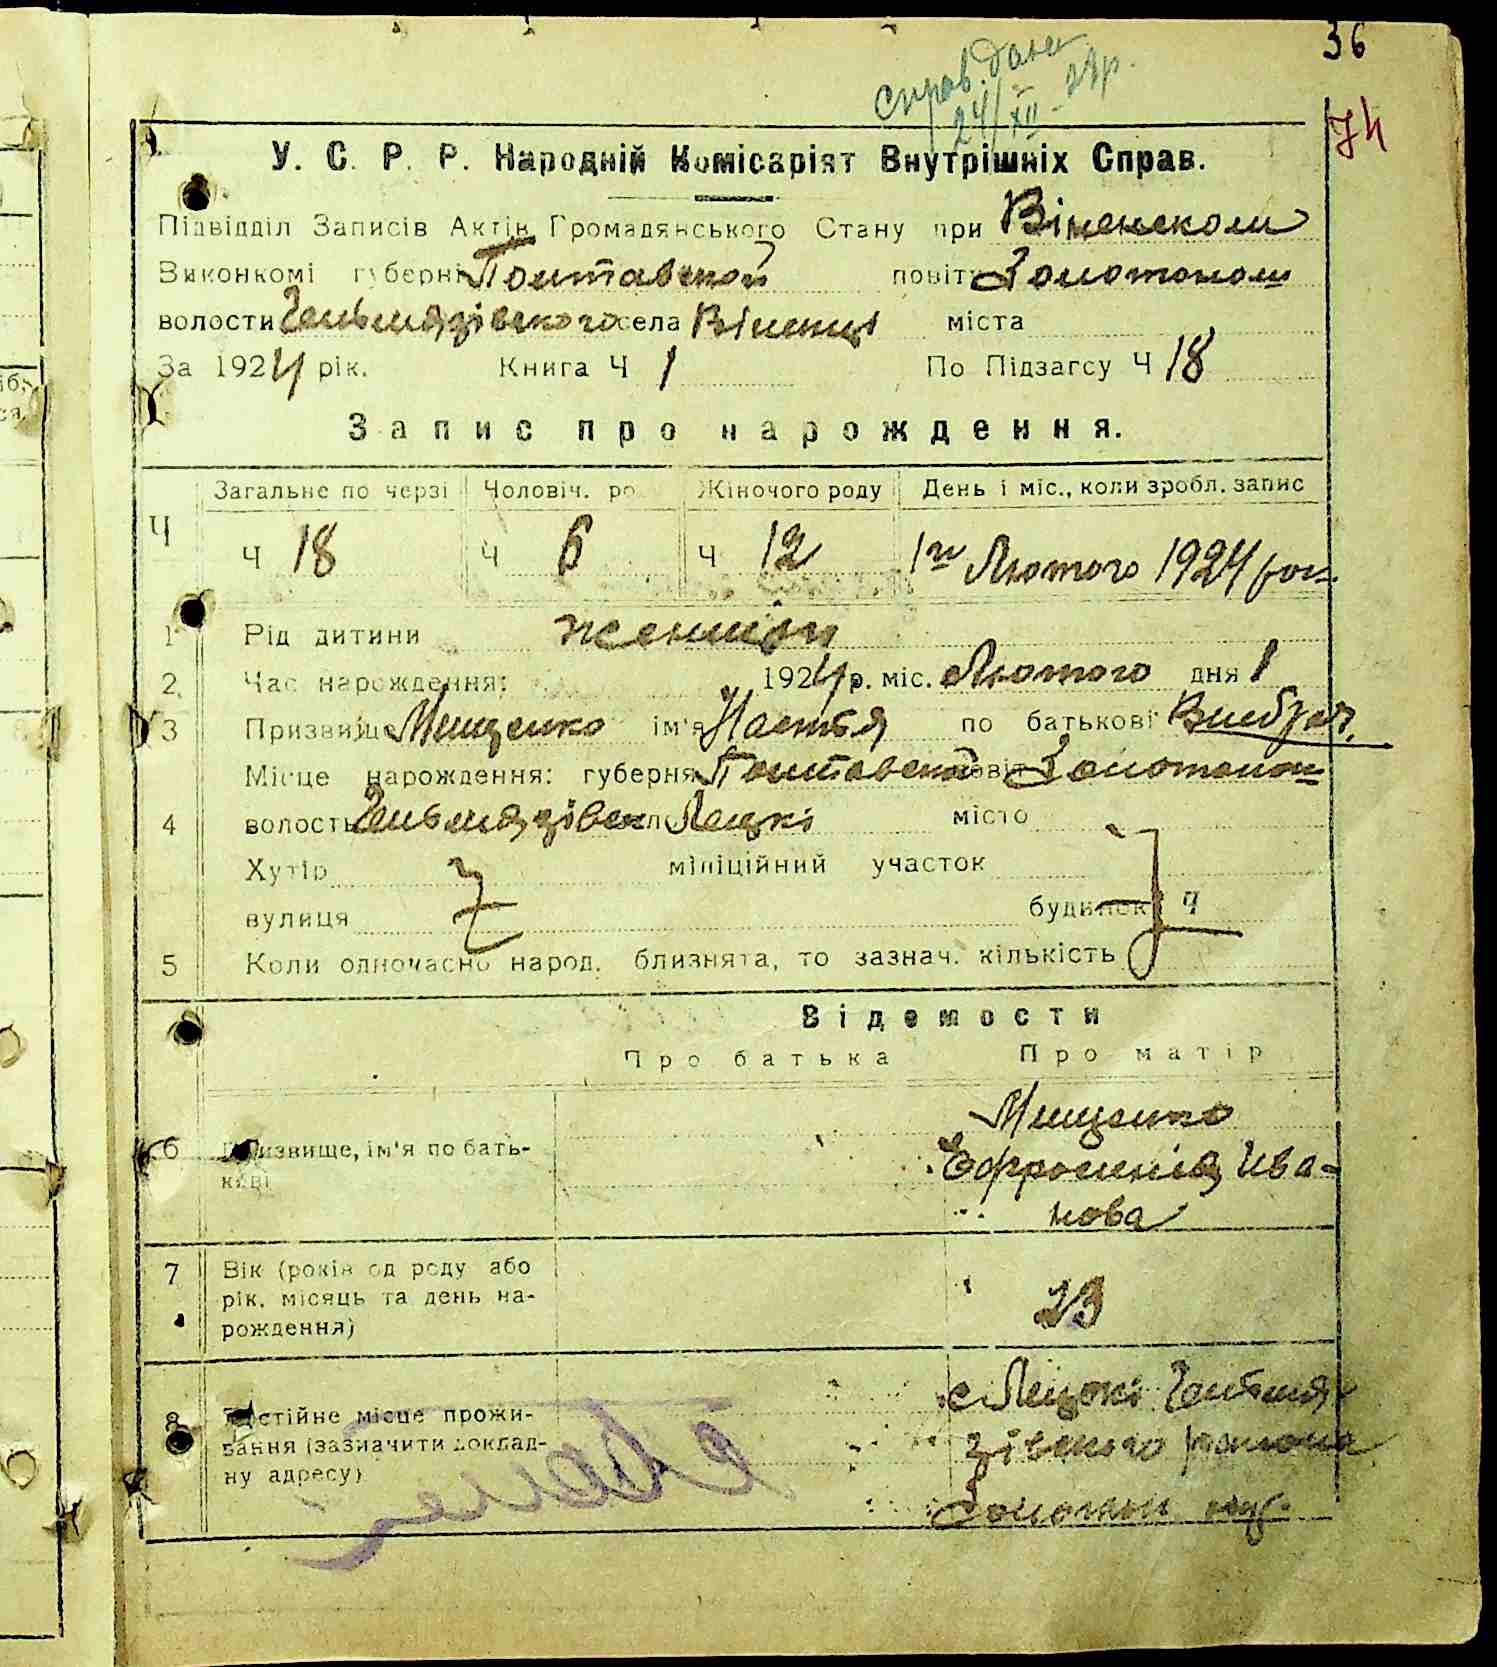 36
74
Справ. дана
24/XII-29р.
У. С. Р. Р. Народній Комісаріят Внутрішніх Справ.
Підвідділ Записів Актів Громадянського Стану при Віненском
Виконкомі губерні Полтавской повіт Золотонош
волости Гельмязівского села Вінинці міста
За 1924 рік. Книга Ч 1 По Підзагсу Ч 18
Запис про народження.
Загальне по черзі Чоловіч. ро Жіночого роду День і міс., коли зробл. запис
Ч Ч 18 Ч 6 Ч 12 1го Лютого 1924 рок
1 Рід дитини женщін
2 Час народження: 1924 р. міс. Лютого дня 1
3 Призвище Мищенко ім'я Настя по батькові Внебрач.
Місце народження: губерня Полтавской повіт Золотонош
4 волость Гельмязівск Лецкі місто
Хутір міліційний участок
вулиця будинок Ч
5 Коли одночасно народ. близнята, то зазнач. кількість
Відемости
Про батька Про матір
6 Призвище, ім'я по бать-
кові
Мищенко
Єфросинія Ива-
нова
7 Вік (років од роду або
рік, місяць та день на-
рождення)
23
8 Постійне місце прожи-
вання (зазначити доклад-
ну адресу)
с Лецкі Гельмя-
зівского района
Золотон окр.